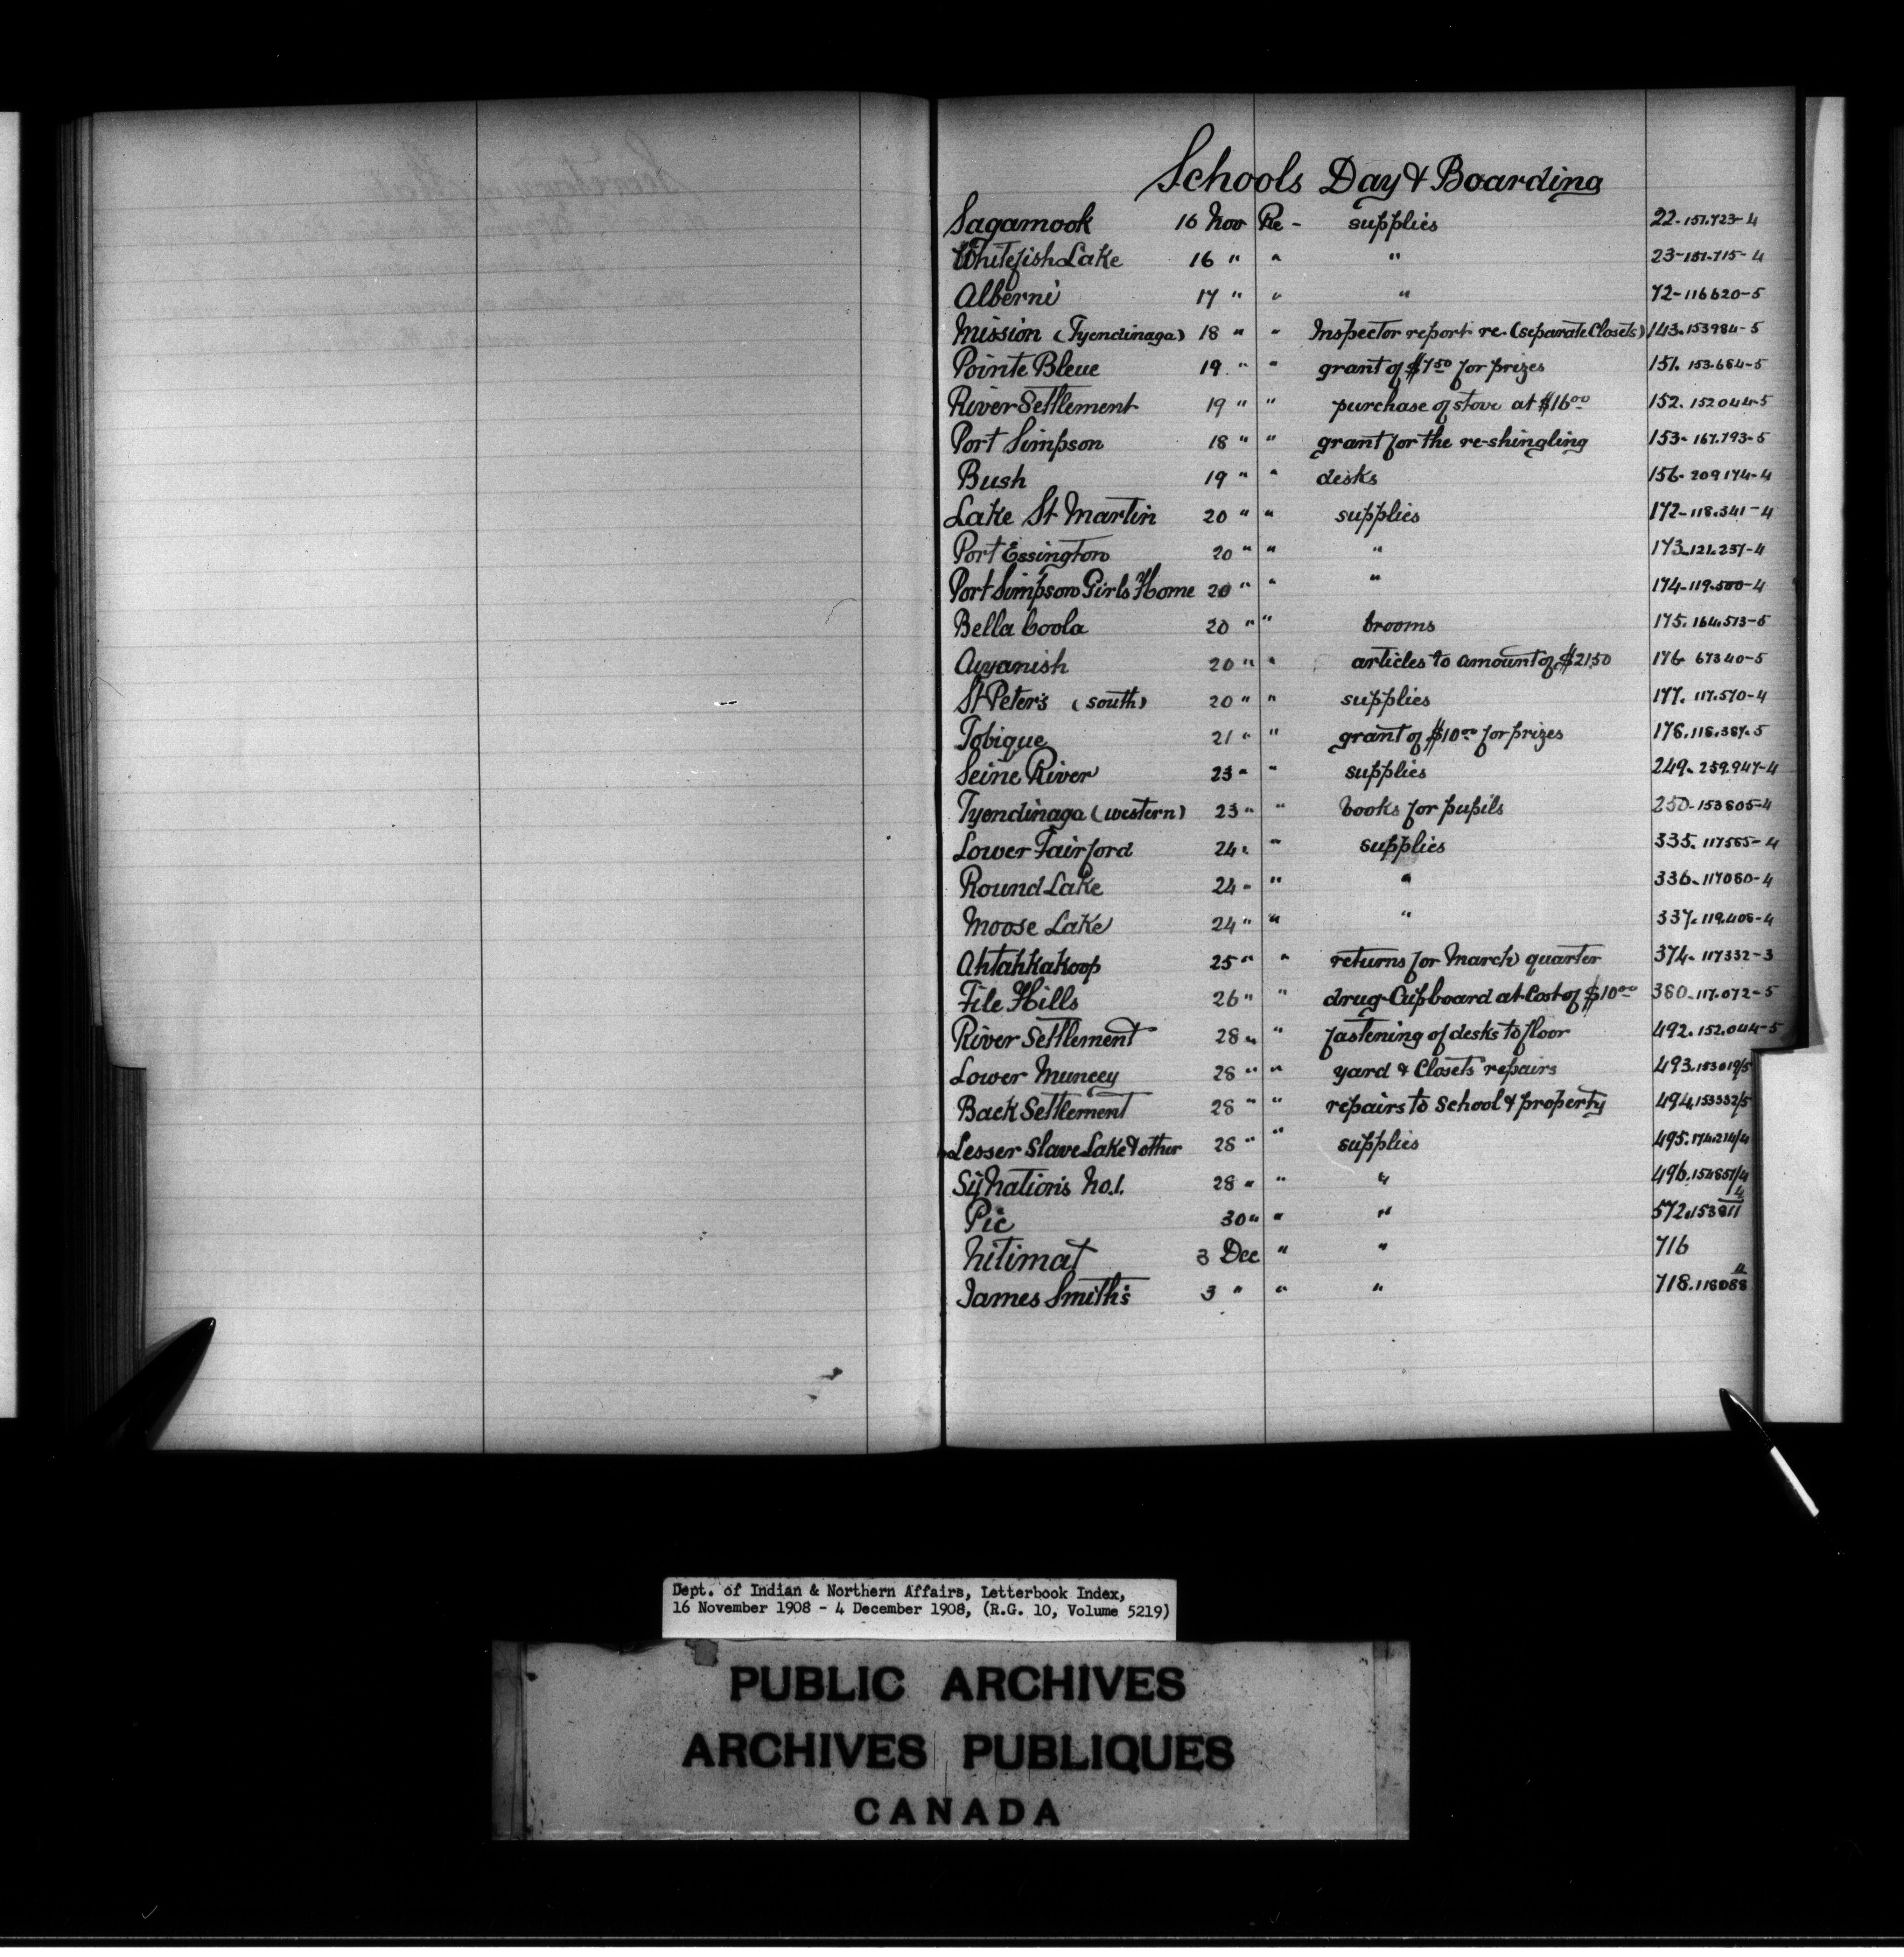 Schools Day & Boarding
Sagamook 16 Nov Re - supplies 22-151.723-4
Whitefish Lake 16 " " " 23-151.715-4
Alberni 17 " " " 72-116620-5
Mission (Tyendinaga) 18 " " Inspector report re. (separate Closets) 143.153984-5
Pointe Bleue 19 " " grant of $7.50 for prizes 151. 153.684-5
River Settlement 19 " " purchase of stove at $16.00 152. 152044-5
Port Simpson 18 " " grant for the re-shingling 153-167.793-5
Bush 19 " " desks 156-209174-4
Lake St Martin 20 " " supplies 172-118.341-4
Port Essington 20 " " " 173-121.237-4
Port Simpson Girls Home 20 " " " 174-119.500-4
Bella Coola 20 " " brooms 175.164.513-5
Aiyanish 20 " " articles to amount of $21.50 176 67340-5
St Peter's (south) 20 " " supplies 177. 117.570-4
Tobique 21 " " grant of $10.00 for prizes 178.118.387.5
Seine River 23 " " supplies 249.259.947-4
Tyendinaga (western) 23 " " books for pupils 250-153805-4
Lower Fairford 24 " " supplies 335. 117565-4
Round Lake 24 " " " 336-117080-4
Moose Lake 24 " " " 337.119.408-4
Ahtahkakoop 25 " " returns for March quarter 374. 117332-3
File Hills 26 " " drug-Cupboard at Cost of $10.00 380-117.072-5
River Settlement 28 " " fastening of desks to floor 492.152.044-5
Lower Muncey 28 " " yard & Closets repairs 493.153019/5
Back Settlement 28 " " repairs to School & property 494.153332/5
Lesser Slave Lake & other 28 " " supplies 495.174.214/4
Six Nations No.1. 28 " " " 496.154857/4
Pic 30 " " " 572.153811 4
Kitimat 3 Dec " " 716
James Smith's 3 " " " 718.118088 4
Dept. of Indian & Northern Affairs, Letterbook Index,
16 November 1908 - 4 December 1908, (R.G. 10, Volume 5219)
PUBLIC ARCHIVES
ARCHIVES PUBLIQUES
CANADA